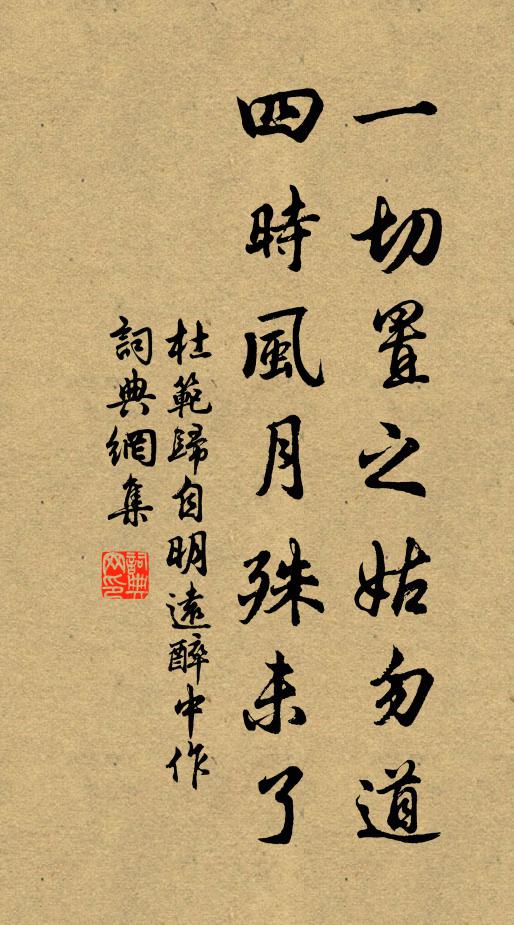 一切置之姑勿道
四時風月殊未了
杜範歸自明遠醉中作
詞典網集
詞典网印